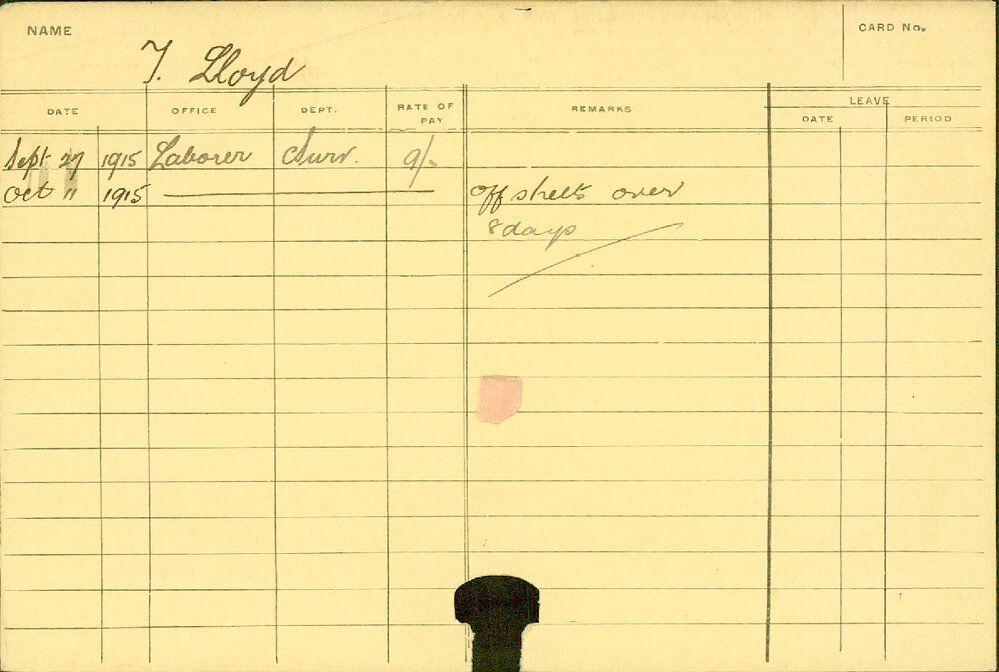 NAME
CARD No.
T. Lloyd
DATE OFFICE DEPT. RATE OF PAY REMARKS LEAVE
DATE PERIOD
Sept 27 1915 Laborer Surv. 9/-
Oct 11 1915 off sheets over
8 days